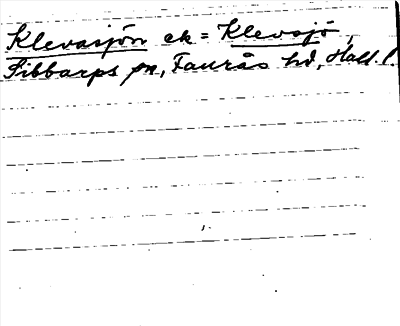 Klevasjön ek = Klevsjö,
Sibbarps sn, Faurås hd, Hall. l.